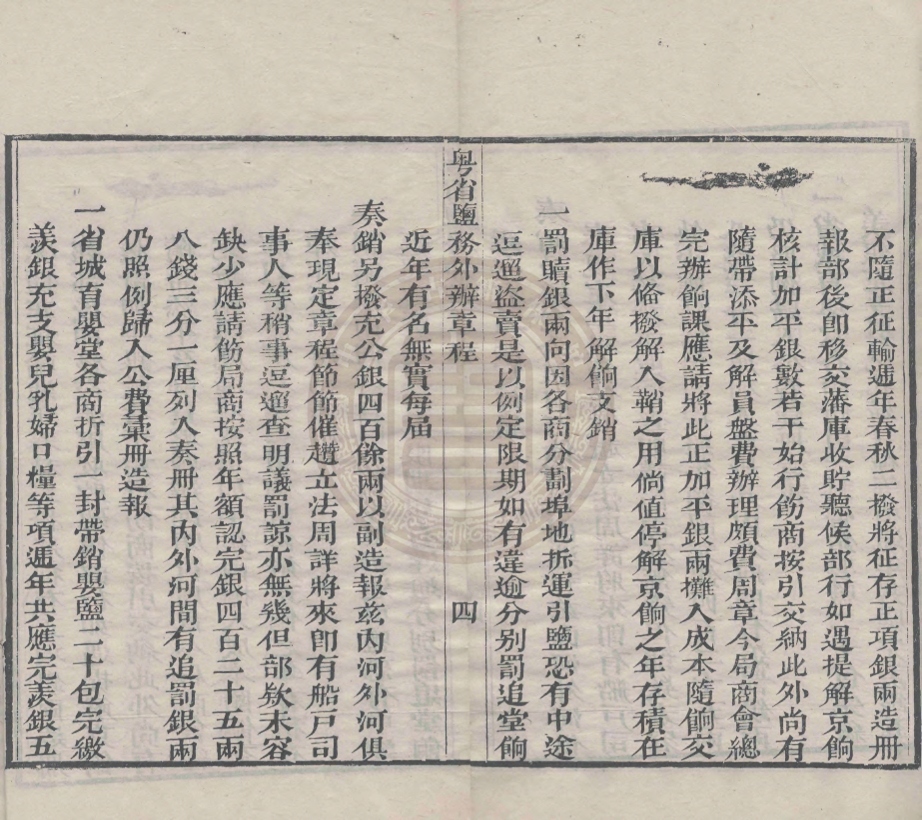 不隨正征輸遞年春秋二撥將征存正項銀兩造册
報部後卽移交藩庫收貯聽候部行如遇提解京餉
核計加平銀數若干始行飭商按引交納此外尚有
隨帶添平及解員盤費辦理頗費周章今局商會總
完辦餉課應請將此正加平銀兩攤入成本隨餉交
庫以偹撥解入鞘之用倘值停解京餉之年存積在
庫作下年解餉支銷
一罰贖銀兩向因各商分劃埠地拆運引鹽恐有中途
逗遛盜賣是以例定限期如有違逾分别罰追堂餉
粤省鹽務外辦章程　四
近年有名無實每届
奏銷另撥充公銀四百餘兩以副造報兹內河外河俱
奉現定章程節節催趲立法周詳將來卽有船戸司
事人等稍事逗遛查明議罰諒亦無幾但部欵未容
缺少應請飭局商按照年額認完銀四百二十五兩
八錢三分一厘列入奏册其內外河間有追罰銀兩
仍照例歸入公費彙册造報
一省城育嬰堂各商折引一封帶銷嬰鹽二十包完繳
羨銀充支嬰兒乳婦口糧等項遞年共應完羨銀五